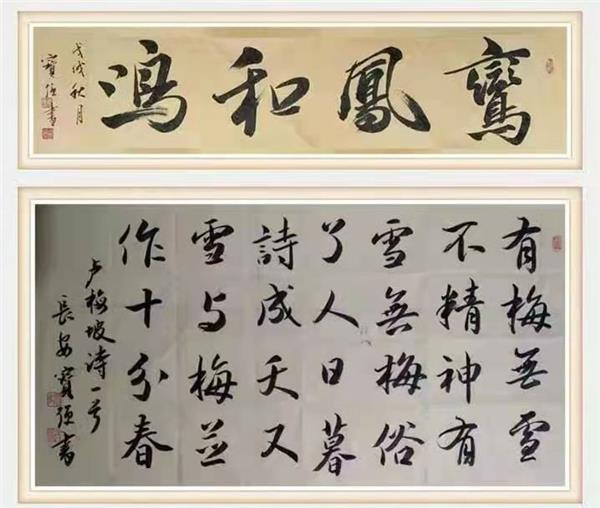 鸞鳳和鳴
戊戌秋月
寶強書
有梅无雪
不精神有
雪無梅俗
了人日暮
詩成天又
雪与梅並
作十分春
卢梅坡诗一首
長安寶強書